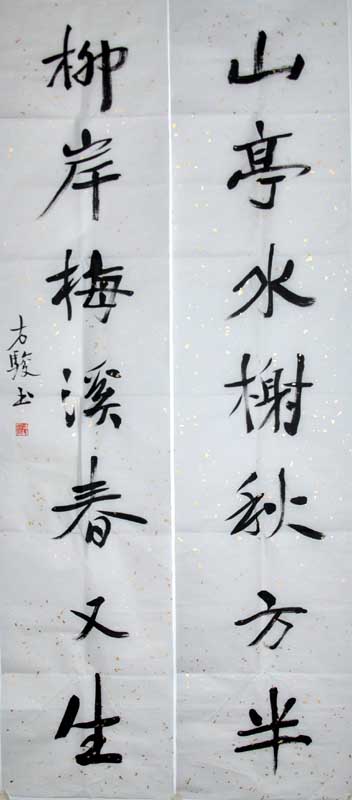 山亭水榭秋方半
柳岸梅溪春又生
方駿书